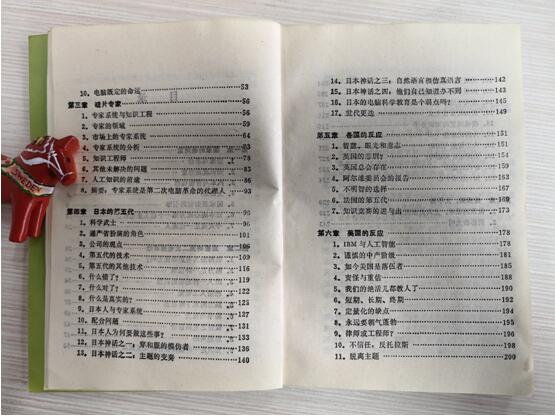 10. 电脑既定的命运 53
第三章 硅片专家 56
1. 专家系统与知识工程 56
2. 专家的领域 59
3. 市场上的专家系统 64
4. 专家系统的分析 76
5. 知识工程师 78
6. 其他未解决的问题 83
7. 人工知识的前途
8. 摘要：专家系统是第二次电脑革命的代理人 93
第四章 日本的第五代 96
1. 科学武士 96
2. 通产省扮演的角色 101
3. 公司的观点 106
4. 第五代的技术 109
5. 第五代的其他技术 116
6. 什么错了? 121
7. 什么对了? 121
8. 什么是真实的?
9. 日本人与专家系统
10. 配合问题
11. 日本人为何要做这些事?
12. 日本神话之一：穿和服的模仿者 136
13. 日本神话之二：主题的变奏 140
14. 日本神话之三：自然语言相仿真语言 142
15. 日本神话之四：他们自己知道办不到 145
16. 日本的电脑科学教育是个弱点吗? 147
17. 世代更迭 149
第五章 各国的反应 151
1. 智慧、眼光和意志 151
2. 英国的悲剧? 151
3. 英国总会存在
4. 阿尔维委员会的报告
5. 不明智的选择
6. 法国的第五代
7. 知识竞赛的进与出
第六章 美国的反应 178
1. IBM 与人工智能 178
2. 谨慎的中产阶级 181
3. 如今美国是落伍者 185
4. 责任与重估 188
5. 我们的绝活儿都教人了 190
6. 短期、长期、终期 192
7. 定量化的缺点 194
8. 永远要朝气蓬勃 195
9. 律师或工程师? 196
10. 不信任，反托拉斯 198
11. 脱离主题 200
SWEDEN